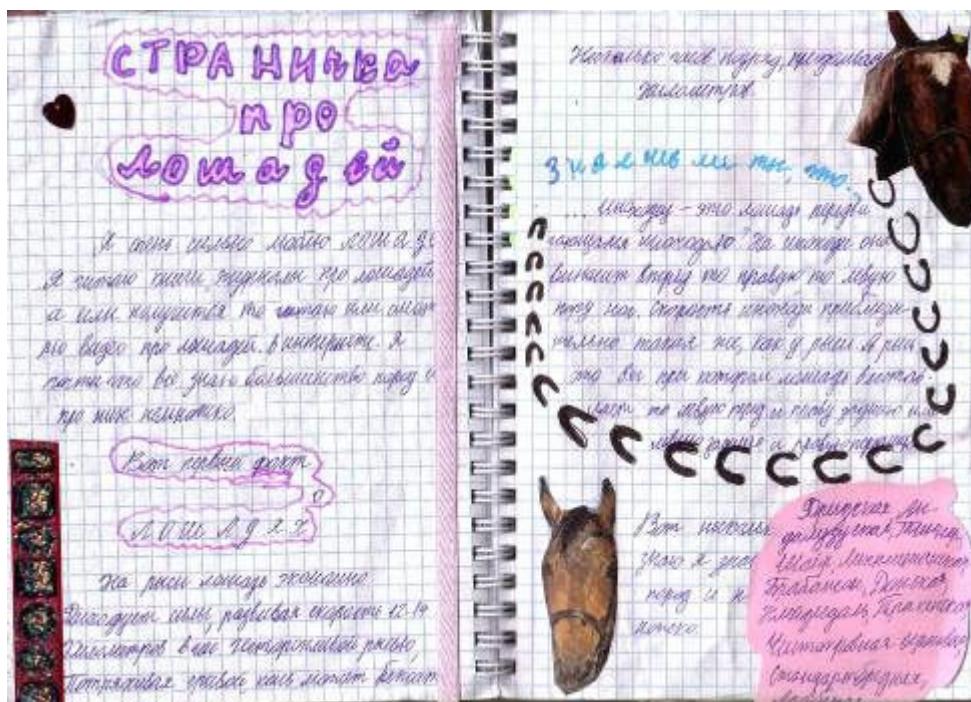 СТРАНИчка
про
лошадей
Я очень сильно люблю лошаде
Я читаю книги, журналы про лошадей
а если получится то читаю или смот
рю видео про лошадей в интернете. Я
почти что всё знаю большинство пород и
про них немножко
Вот первый факт
о
лошадях
На рыси лошадь экономно
расходует силы, развивая скорость 12-14
километров в час неторопливой рысью,
потряхивая гривой, конь может бежать
Несколько часов подряд, преодолевая
километров
Знаешь ли ты, что...
... иноходец - это лошадь передви
гающаяся иноходью. На иноходи она
выносит вперёд то правую то левую
пару ног. Скорость иноходи приблизи-
тельно такая же, как у рыси А рысь
это при котором лошадь
то левую перед и праву заднюю или
левую заднюю и правую переднюю
Вот
знаю я
пород и
Брабансон, Донская
Чистокровная верховая
Стандартбредная,